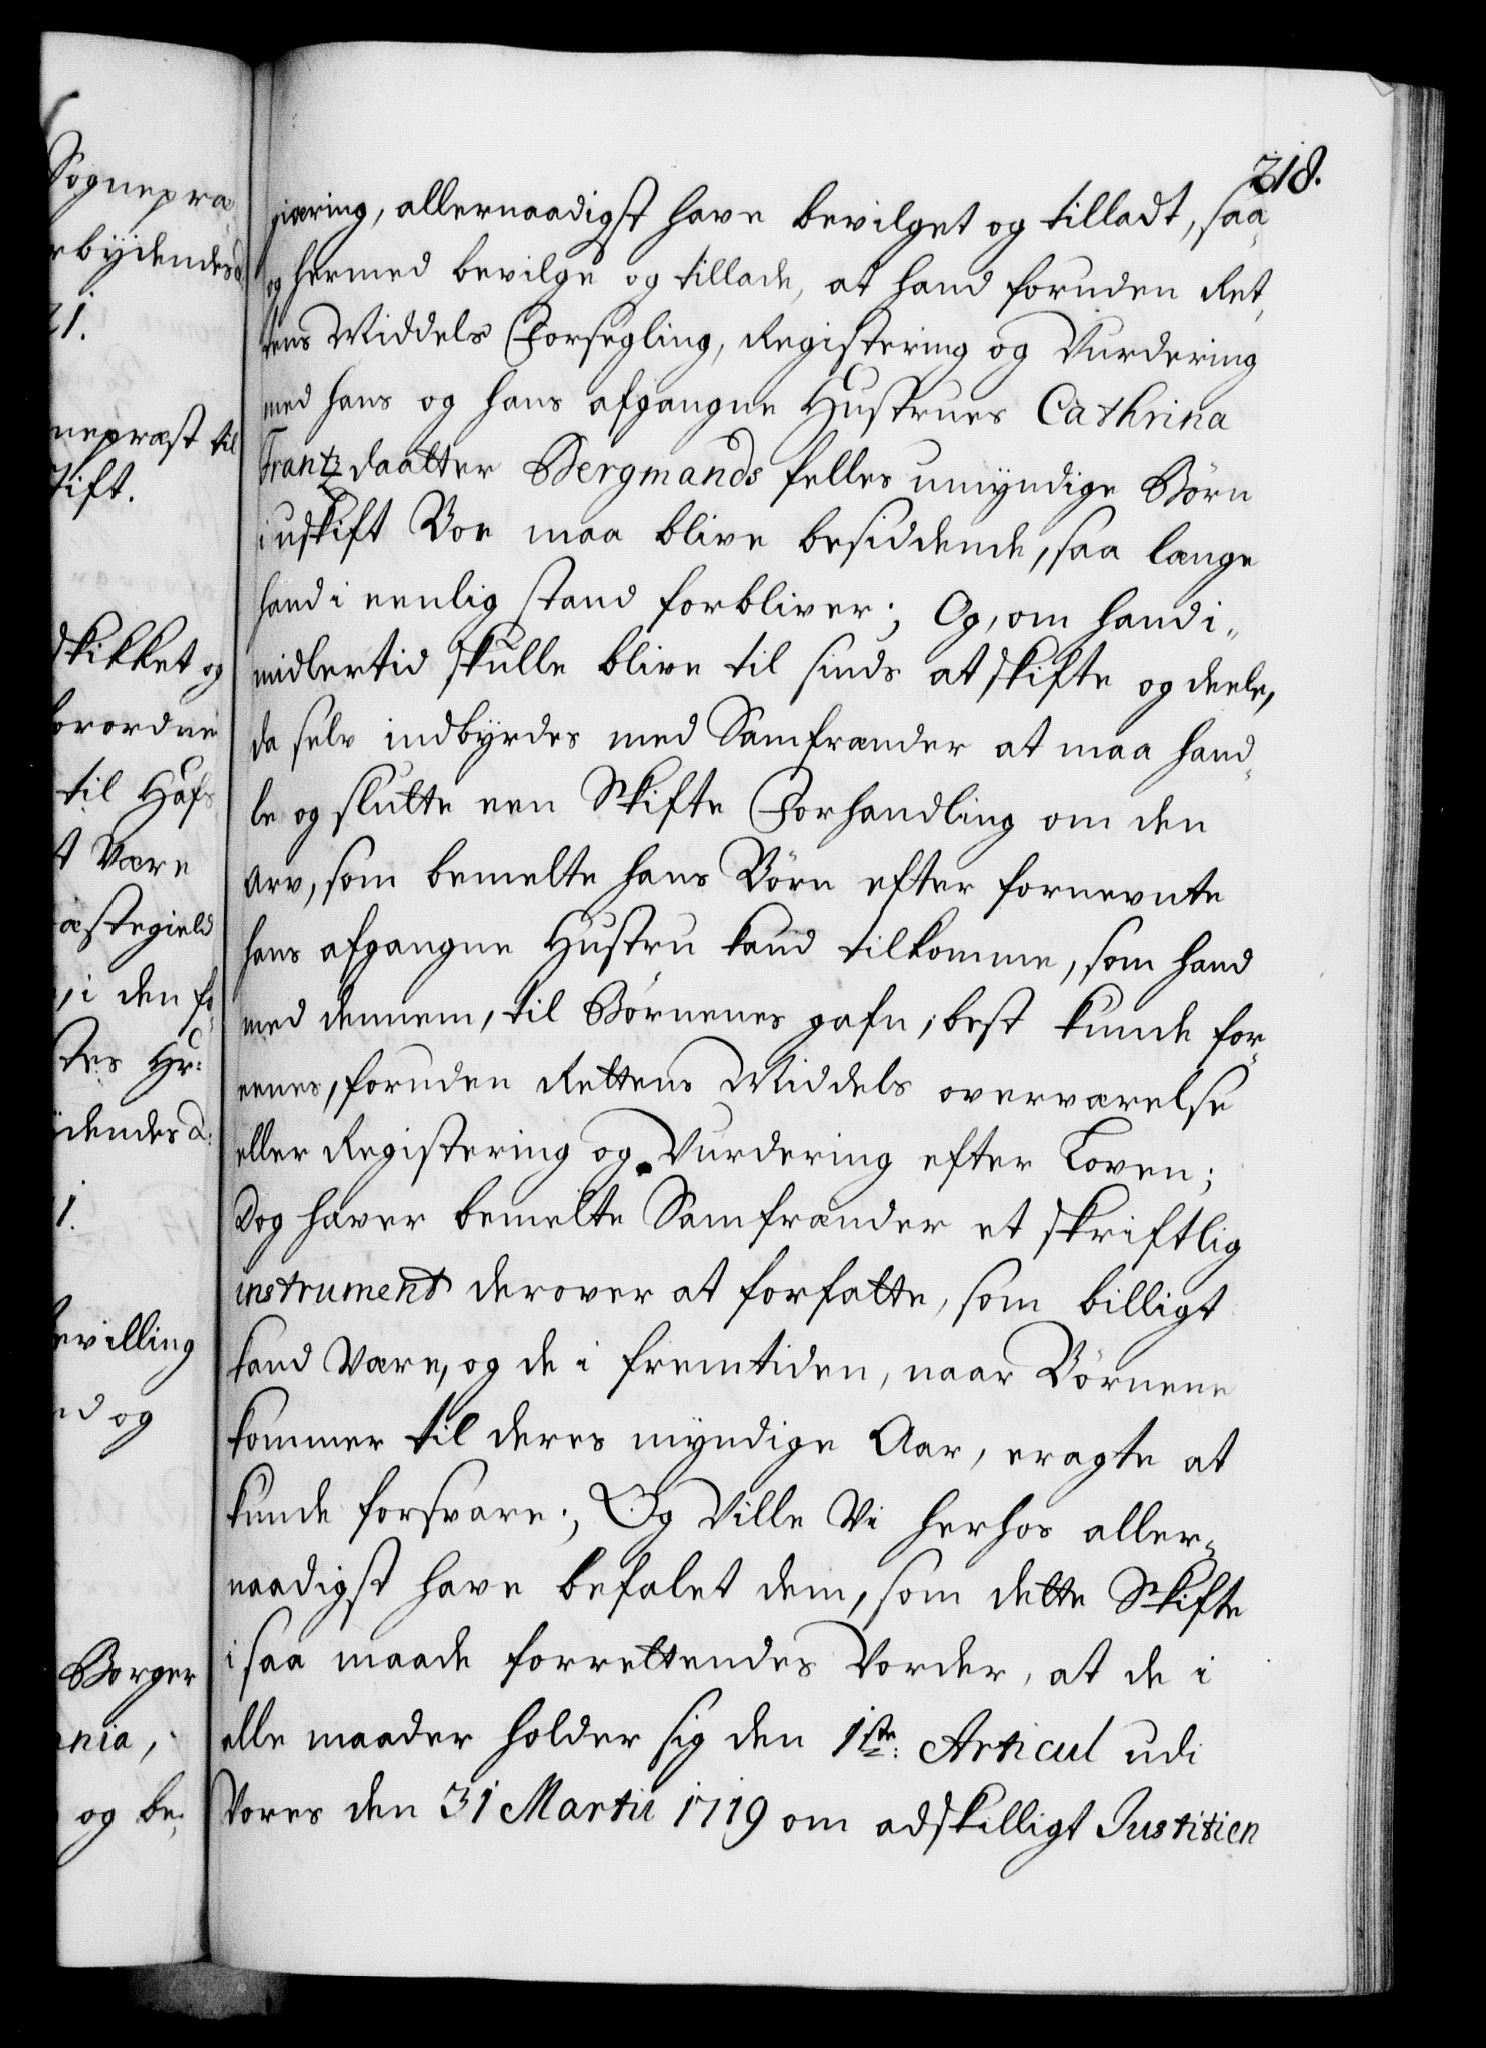 218.
giæring, allernaadigst have bevilget og tilladt, saa„
og hermed bevilge og tillade, at hand foruden Ret„
tens Middels Forsegling, Registering og Vurdering
med hans og hans afgangne Hustrues Cathrina
Frantzdaatter Bergmands felles umyndige Börn
i uskift Boe maa blive besiddende, saa længe
hand i eenlig stand forbliver; Og, om hand i„
midlertid skulle blive til sinds at skifte og deele,
da selv indbyrdes med Samfrænder at maa hand„
le og slutte een Skifte Forhandling om den
Arv, som bemelte hans Börn efter fornevnte
hans afgangne Hustru kand tilkomme, som hand
med dennem, til Börnenes gafn, best kunde for„
eenes, foruden Rettens Middels overværelse
eller Registering og Vurdering efter Loven;
Dog haver bemelte Samfrænder et skriftlig
instrument derover at forfatte, som billigt
kand være, og de i fremtiden, naar Börnene
kommer til deres myndige Aar, eragte at
kunde forsvare; Og Ville Vi herhos aller„
naadigst have befalet dem, som dette Skifte
i saa maade forrettendes Vorder, at de i
alle maader holder sig den 1ste: Articul udi
Vores den 31 Martii 1719 om adskilligt Justitien
Sognepræ„
rbÿdendes
21.
nepræst til
Stift.
dskikket og
orordne
til Hafs
t Være
æstegield
, i den fo„
des Hr:
ÿdendes
1.
bevilling
ed og
Borger
ania,
og be„